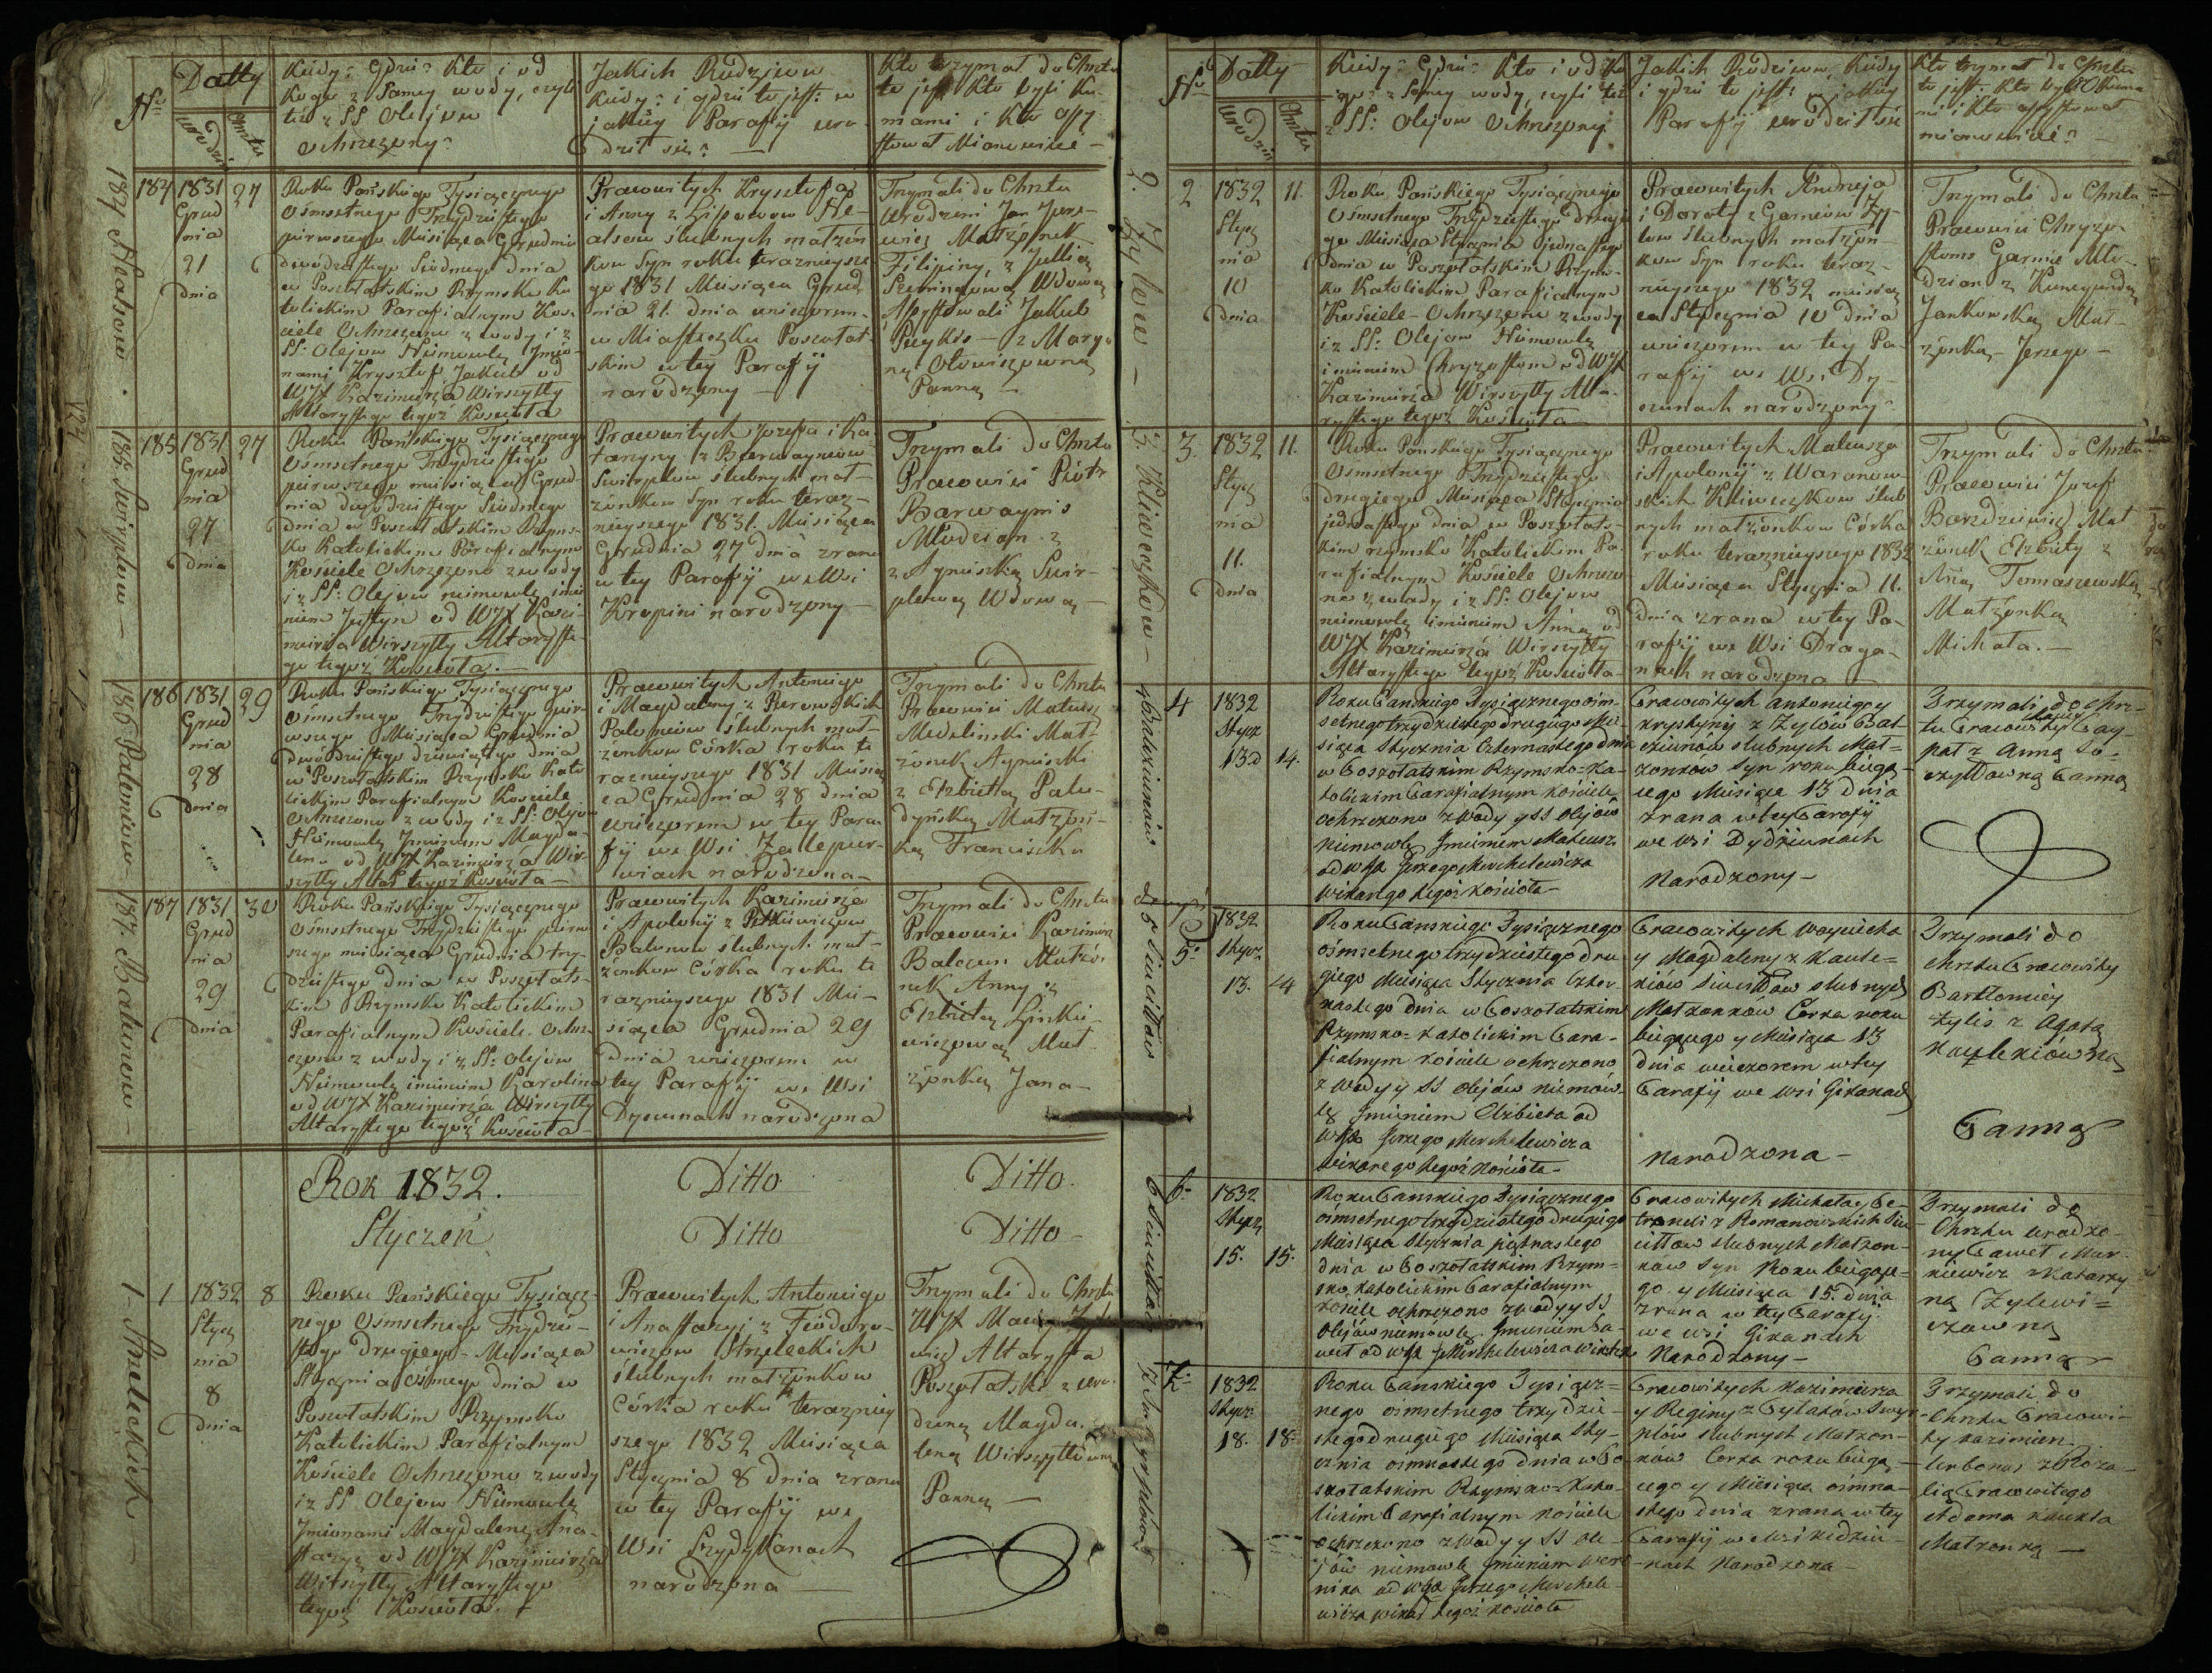 No
Datty
Urodzin
Chrztu
Kiedy? Gdzie? Kto i od
Kogo z Samey wody, czyli
też z SS Olejow
Ochrzczony?
Jakich Rodzicow
kiedy? i gdzie to jest: w
jakiey Parafij uro-
dził się? —
Kto trzymał do Chrztu
to jest Kto byli Ku-
mami i Kto assy-
stował Mianowicie —
184
1831
Grud
nia
21
dnia
27
Roku Pańskiego Tysiącznego
Osmsetnego Trzydziestego
pierwszego Miesiąca Grudnia
dwódziestego Siódmego dnia
w Poszołatskim Rzymsko Ka
tolickim Parafialnym Koś-
ciele Ochrzczono z wody i z
SS: Olejow Niemowlę Jmio-
nami Krysztof Jakub od
WJX Kazimierza Wirszyłły
Altarystego tegoż Kościoła
Prawowitych Krysztofa
i Anny z
ślubnych małżon
kow Syn roku teraznieysze
go 1831 Miesiąca Grud
nia 21. dnia wieczorem
w Miasteczku Poszołat-
skim w tey Parafij
narodzony —
Trzymali do Chrztu
Urodzeni Jan
Małżonek
Filipiny, z Jullią
Wdową
Assystowali Jakub
z Mary
ną
Panną —
185
1831
Grud
nia
27
dnia
27
Roku Pańskiego Tysiącznego
Osmsetnego Trzydziestego
pierwszego miesiąca Grud-
nia dwódziestego Siódmego
dnia w Poszołatskim Rzyms-
ko Katolickim Parafialnym
Kościele Ochrzczono z wody
i z SS: Olejow niemowlę imie
niem Justyn od WJX Kazi-
mierza Wirszyłły Altaryste
go tegoż Kościoła. —
Prawowitych Jozefa i Ka-
tarzyny z
ślubnych mał-
żonkow Syn roku teraz-
nieyszego 1831. Miesiąca
Grudnia 27 dnia zrana
w tey Parafij we Wsi
Kropini narodzony —
Trzymali do Chrztu
Prawowici Piotr
Barwaynis
Młodzian z
z Agnieszką Swir-
plewą Wdową —
186
1831
Grud
nia
28
dnia
29
Roku Pańskiego Tysiącznego
Osmsetnego Trzydziestego pier-
wszego Miesiąca Grudnia
dwódziestego dziewiątego dnia
w Poszołatskim Rzymsko Kato
lickim Parafialnym Kościele
Ochrzczono z wody i z SS: Olejow
Niemowlę Jmieniem Magda-
lena od WJX Kazimierza Wir-
szyłły Altar tegoż Kościoła —
Prawowitych Antoniego
i Magdaleny z
ślubnych mał-
żonkow Córka roku te
raznieyszego 1831 Miesią
ca Grudnia 28 dnia
wieczorem w tey Para
fij we Wsi Zalepur-
wiach narodzona —
Trzymali do Chrztu
Prawowici Mateusz
Medeliński Mał-
żonek Agnieszki
z Elżbietą Palu-
dyńską Małżon-
ką Franciszka
187
1831
Grud
nia
29
dnia
30
Roku Pańskiego Tysiącznego
Osmsetnego Trzydziestego pierw
szego miesiąca Grudnia trzy-
dziestego dnia w Poszołats-
kim Rzymsko Katolickim
Parafialnym Kościele Ochrz-
czono z wody i z SS: Olejow
Niemowlę imieniem Karolina
od WJX Kazimierza Wirszyłły
Altarystego tegoż Kościoła —
Prawowitych Kazimierza
i Apolonij z Petkiewiczow
Balunow ślubnych mał-
żonkow Córka roku te
raznieyszego 1831 Mie-
siąca Grudnia 29
dnia wieczorem w
tey Parafij we Wsi
Dyrwunach narodzona
Trzymali do Chrztu
Prawowici Kazimierz
Balcun Małżo-
nek Anny z
Elżbietą Linkie-
wiczową Mał-
żonką Jana —
Rok 1832.
Styczeń
Ditto
Ditto
Ditto
Ditto —
1
1832
Stycz
nia
8
dnia
8
Roku Pańskiego Tysiącz-
nego Osmsetnego Trzydzie-
stego drugiego Miesiąca
Stycznia ósmego dnia w
Poszołatskim Rzymsko
Katolickim Parafialnym
Kościele Ochrzczono z wody
i z SS Olejow Niemowlę
Jmionami Magdaleną Ana-
stazyą od WJX Kazimierza
Wirszyłły Altarystego
tegoż Kościoła.
Prawowitych Antoniego
i Anastazyi z Fiedoro-
wiczow Strzeleckich
ślubnych małżonkow
Córka roku terazniey
szego 1832 Miesiąca
Stycznia 8 dnia zrana
w tey Parafij we
Wsi Szydykanach
narodzona —
Trzymali do Chrztu
WJX
Altarysta
Poszołatski z uro-
dzoną Magda-
leną Wirszyłłówną
Panną —
1 — Strzeleckich —
187. Balunow —
185 Swirplow —
No
Datty
Urodzin
Chrztu
Kiedy? Gdzie? Kto i od Ko
go? z Samey wody, czyli też
z SS: Olejow Ochrzczony?
Jakich Rodzicow, Kiedy
i gdzie to jest: w jakiey
Parafij urodził się
Kto trzymał do Chrztu
to jest: Kto byli Kuma
mi i Kto assystował
mianowicie? —
2
1832
Stycz
nia
10
dnia
11.
Roku Pańskiego Tysiącznego
Osmsetnego Trzydziestego drugie
go Miesiąca Stycznia jednastego
dnia w Poszołatskim Rzyms-
ko Katolickim Parafialnym
Kościele Ochrzczono z wody
i z SS: Olejow Niemowlę
imieniem Chryzostom od WJX
Kazimierza Wirszyłły Alta-
rystego tegoż Kościoła —
Prawowitych Andrzeja
i Doroty z Garniow Zy-
low ślubnych małżon-
kow Syn roku teraz-
nieyszego 1832 miesią
ca Stycznia 10 dnia
wieczorem w tey Pa-
rafij we Wsi Dy-
narodzony
Trzymali do Chrztu
Prawowici Chryzo-
stom Garnie Mło-
dzian z Kunegundą
Jankowską Mał-
żonką Jerzego —
3.
1832
Stycz
nia
11.
dnia
11.
Roku Pańskiego Tysiącznego
Osmsetnego Trzydziestego
drugiego Miesiąca Stycznia
jednastego dnia w Poszołats-
kim rzymsko Katolickim Pa-
rafialnym Kościele Ochrzczo-
no z wody i z SS: Olejow
niemowlę imieniem Anna od
WJX Kazimierza Wirszyłły
Altarystego tegoż Kościoła
Prawowitych Mateusza
i Apolonij z Waranow-
skich Kliweczkow ślub
nych małżonkow Córka
roku teraznieyszego 1832
Miesiąca Stycznia 11.
dnia zrana w tey Pa-
rafij we Wsi Draga-
nach narodzona —
Trzymali do Chrztu
Prawowici Jozef
Borzdziewicz Mał
żonek Elżbiety z
Anną Tomaszewską
Małżonką
Michała. —
4
1832
Stycz
13
14.
Roku Panskiego Tysiącznego osm-
setnego trzydziestego drugiego Mie-
siąca Stycznia Czternastego dnia
w Poszołatskim Rzymsko=Ka-
tolickim Parafialnym Kościele
ochrzczono z wody y SS Olejów
niemowlę Jmieniem Mateusz
od WJX Jerzego Merchelewicza
Wikarego tegoż Kościoła —
Prawowitych Antoniego y
Krystyny z Zylow Bal-
cziunów slubnych Mał=
żonków Syn roku biegą-
cego Miesiąca 13 dnia
zrana w tey Parafij
we Wsi Dydziunach
Narodzony —
Trzymali do chrz-
tu Prawowity Kasper Gay-
pat z Anną So-
czyłłowną Panną
5.
1832
Stycz
13.
14
Roku Panskiego Tysiącznego
ośmsetnego trzydziestego dru
giego Miesiąca Stycznia Czter-
nastego dnia w Poszołatskim
Rzymsko=Katolickim Para-
fialnym Kościele ochrzczono
z wody y SS Olejów niemow-
lę Jmieniem Elżbieta od
WJX Jerzego Merchelewicza
Wikarego tegoż Kościoła —
Prawowitych Woyciecha
y Magdaleny z Kaule-
kiów Siucillow slubnych
Małżonków Corka roku
biegącego y Miesiąca 13
dnia wieczorem w tey
Parafij we Wsi Gikanach
Narodzona —
Trzymali do
chrztu Prawowity
Bartłomiey
Zylis z Agatą
Kaulekiówną
Panną
6.
1832
Stycz
15.
15.
Roku Panskiego Tysiącznego
ośmsetnego trzydziestego drugiego
Miesiąca Stycznia piętnastego
dnia w Poszołatskim Rzym-
sko Katolickim Parafialnym
Kościele ochrzczono z wody y SS
Olejów niemowlę Jmieniem Pa-
weł od WJX J Merchelewicza Wikarego
Prawowitych Michała y Pe-
troneli z Romanowskich Siu-
cillow slubnych Małżon-
kow Syn Roku biegące-
go y Miesiąca 15 dnia
zrana w tey Parafij
we Wsi Gikanach
Narodzony —
Trzymali do
Chrztu urodzo-
ny Paweł Mar-
kiewicz z Katarzy
ną Zylewi=
czowną
Panną
7.
1832
Stycz
18.
18.
Roku Panskiego Tysiącz=
nego ośmsetnego trzydzie-
stego drugiego Miesiąca Sty-
cznia ośmnastego dnia w Po
szołatskim Rzymsko=Kato-
lickim Parafialnym Kościele
ochrzczono z wody y SS Ole-
jów niemowlę Jmieniem Wero
nika od WJX Jerzego Merchele-
wicza Wikar tegoż Kościoła
Prawowitych Kazimierza
y Reginy z Swyr-
plów slubnych Małżon-
ków Corka roku biegą-
cego y Miesiąca ośmna-
stego dnia zrana w tey
Parafij we Wsi Kedziu-
nach Narodzona —
Trzymali do
Chrztu Prawowi-
ty Kazimierz
Urbonas z Roza-
lią Prawowitego
Adama Kaukla
Małżonką —
2. Zylow —
3. Kliweczkow —
4 Balcziunów
5 Siucillow
6 Siucillow